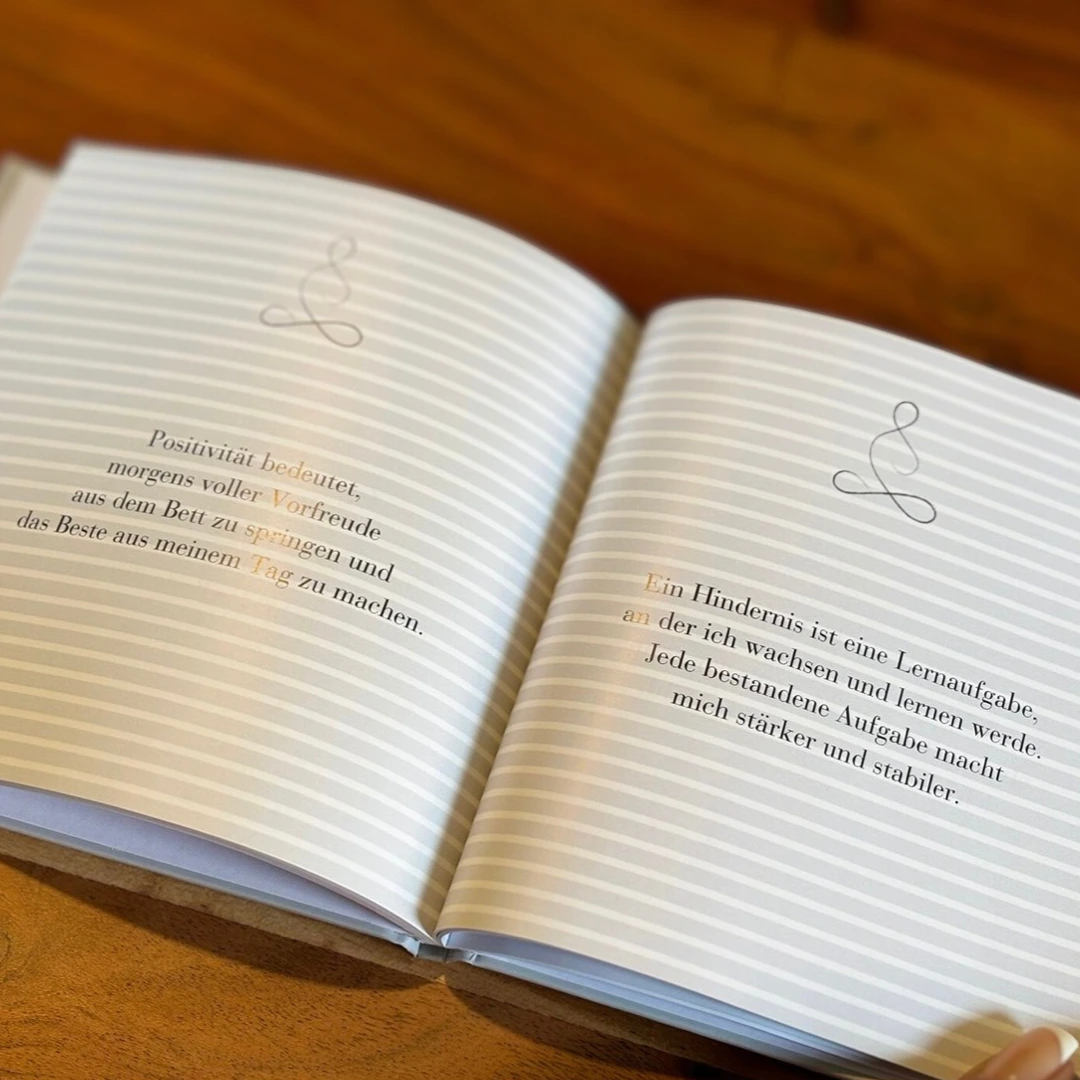 Positivität bedeutet,
morgens voller Vorfreude
aus dem Bett zu springen und
das Beste aus meinem Tag zu machen.
Ein Hindernis ist eine Lernaufgabe,
an der ich wachsen und lernen werde.
Jede bestandene Aufgabe macht
mich stärker und stabiler.